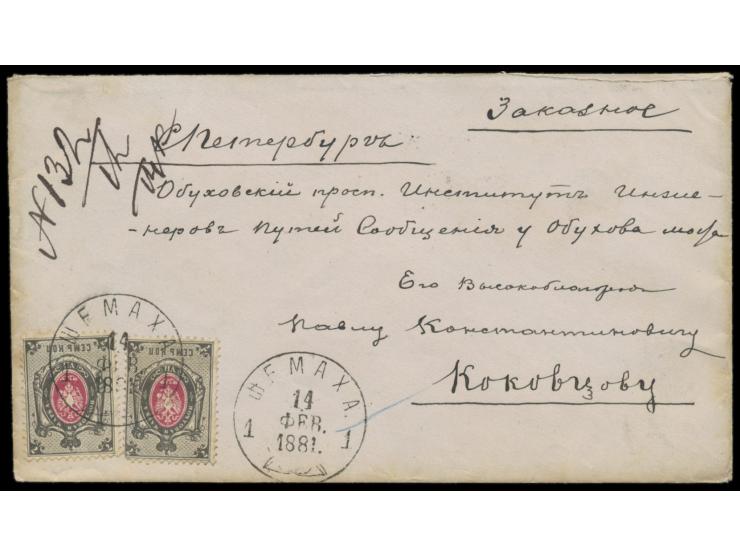 Заказное
С Петербургъ
N 132
Обуховскій просп. Институтъ Инже-
-неровъ Путей Сообщенія у Обухова моста
Его Высокоблагородію
Павлу Константиновичу
Коковцзову
ШЕМАХА
14
ФЕВ.
1881
СЕМЬ КОП
СЕМЬ КОП
ШЕМАХА.
14
1 ФЕВ. 1
1881.